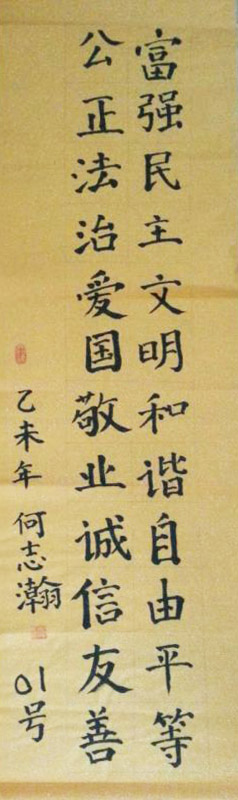 富强民主文明和谐自由平等
公正法治爱国敬业诚信友善
乙未年 何志瀚
01号